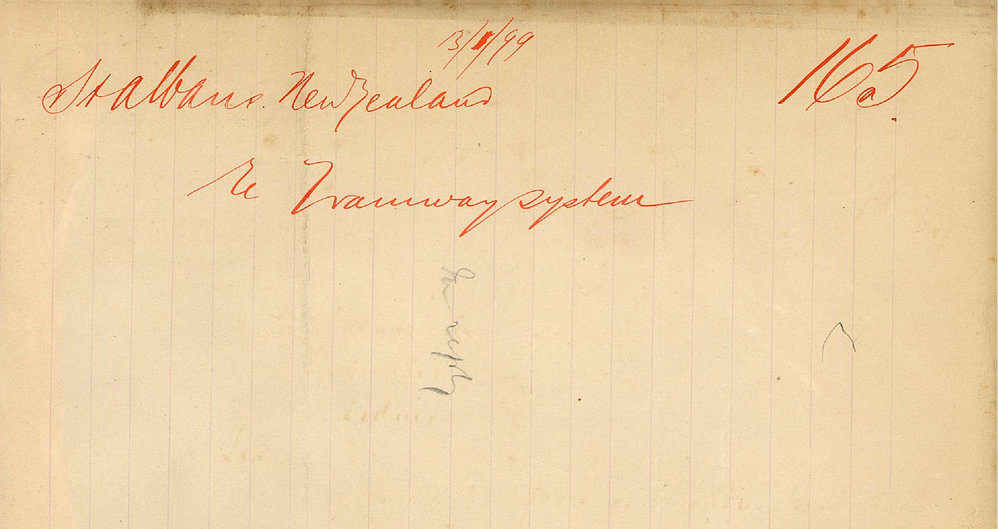 13/1/99
St Albans. New Zealand
165.
re Tramway system
no reply